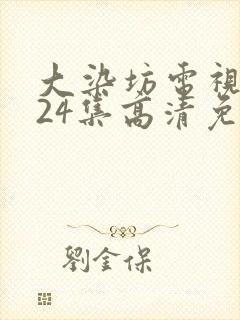 大染坊電視
24集高清免
劉金保